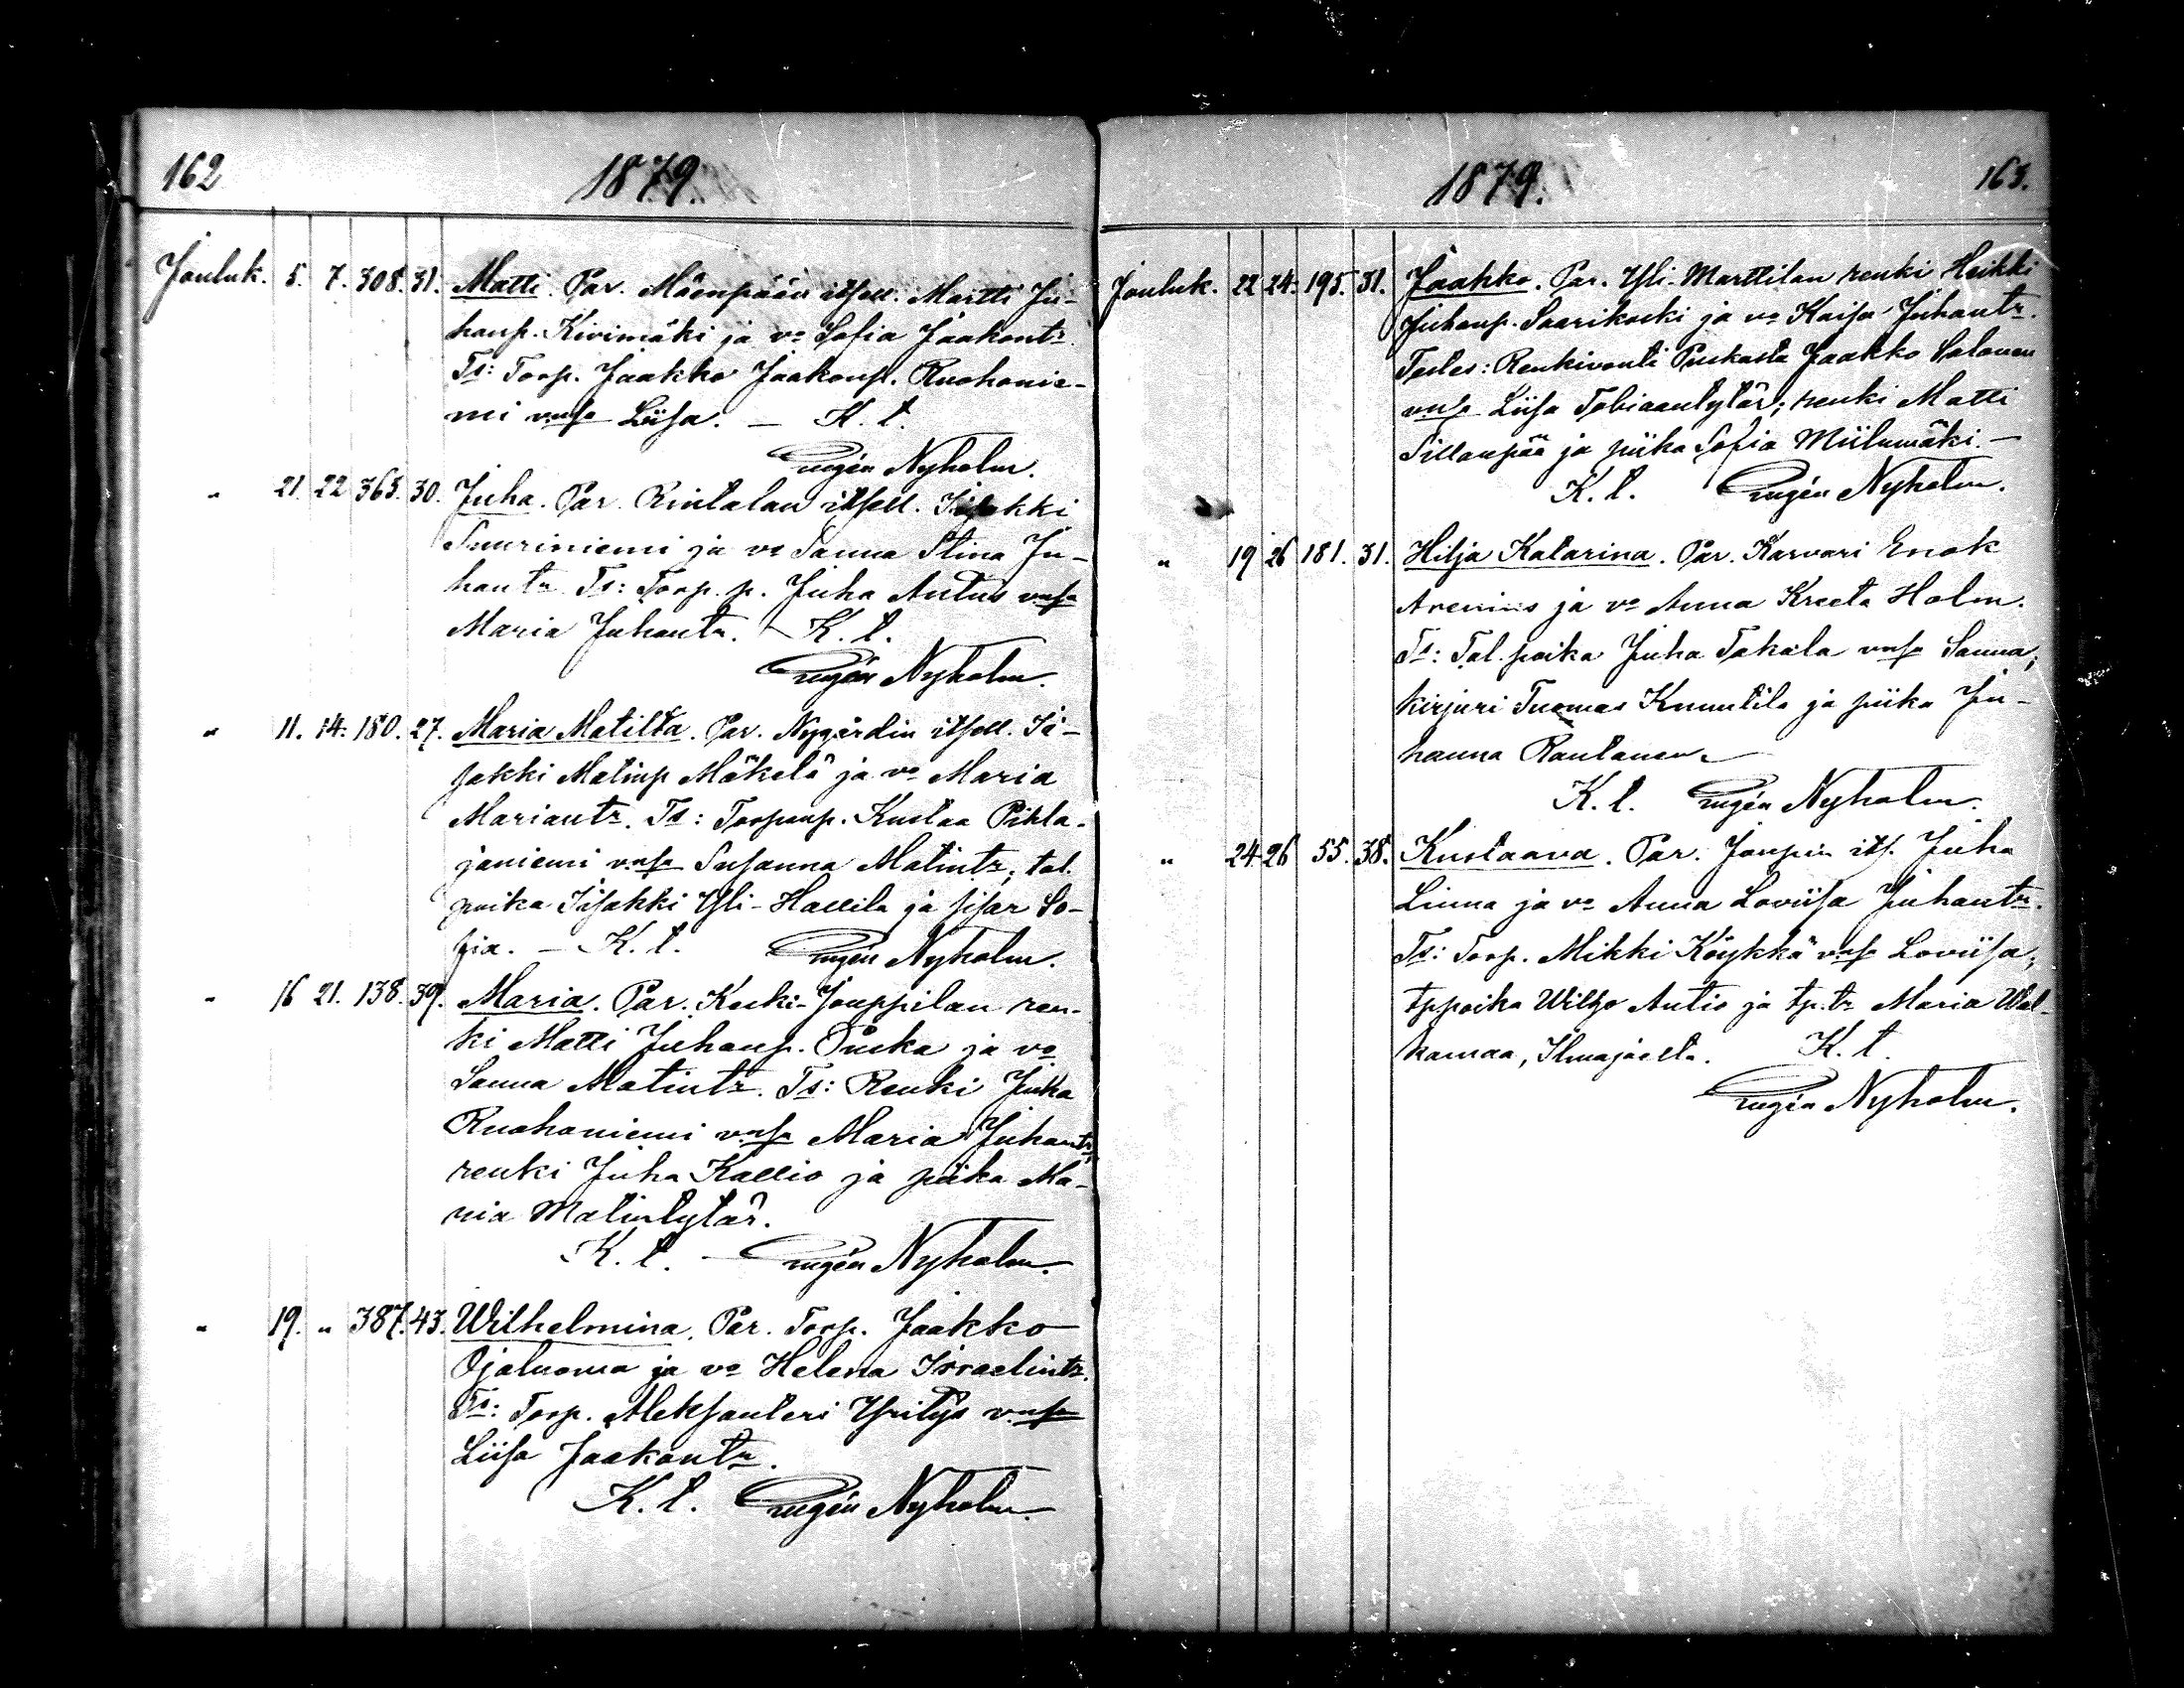 162
1879.
Jouluk. 5. 7. 308. 31. Matti. Par. Mäenpään itsell. Martti Ju-
hanp. Kivimäki ja vo Sofia Jaakontr.
Ts: Torp. Jaakko Jaakonp. Ruohonie-
mi vmsa Liisa. — K. t.
Eugén Nyholm.
" 21. 22 365. 30. Juha. Par. Rintalan itsell. Iisakki
Suuriniemi ja vo Sanna Stina Ju-
hantr. Ts: Torp. p. Juha Antus vmsa
Maria Juhantr. — K. t.
Eugén Nyholm.
" 11. 14. 180. 27. Maria Matilta. Par. Nygårdin itsell. Ii-
sakki Matinp Mäkelä ja vo Maria
Mariantr. Ts: Torpanp. Kustaa Pihla-
janiemi vmsa Susanna Matintr; tal.
poika Iisakki Yli-Hallila ja sisar So-
fia. — K. t. Eugén Nyholm.
" 16 21. 138. 39. Maria. Par. Keski-Jouppilan ren-
ki Matti Juhanp. Puska ja vo
Sanna Matintr. Ts: Renki Juha
Ruohoniemi vmsa Maria Juhantr,
renki Juha Kallio ja piika Ma-
ria Matintytär.
K. t. — Eugén Nyholm.
" 19. " 387. 43. Wilhelmina. Par. Torp. Jaakko
Ojaluoma ja vo Helena Israelintr.
Ts: Torp. Aleksanteri Yritys vmsa
Liisa Jaakontr.
K. t. Eugén Nyholm.
1879.
163.
Jouluk. 22 24. 195. 31. Jaakko. Par. Yli-Marttilan renki Heikki
Juhanp. Saarikoski ja vo Kaisa Juhantr.
Testes: Renkivouti Puskasta Jaakko Salonen
vmsa Liisa Tobiaantytär; renki Matti
Sillanpää ja piika Sofia Miilumäki. —
K. t. Eugén Nyholm.
" 19 26 181. 31. Hilja Katarina. Par. Karvari Enok
Arenius ja vo Anna Kreeta Holm.
Ts: Tal. poika Juha Takala vmsa Sanna;
kirjuri Tuomas Knuutila ja piika Ju-
hanna Rautanen.
K. t. Eugén Nyholm.
" 24 26 55. 38. Kustaava. Par. Joupin its. Juha
Linna ja vo Anna Loviisa Juhantr.
Ts: Torp. Mikki Köykkä vmsa Loviisa;
tppoika Wiltzo Autio ja tp. tr Maria Wal-
kamaa, Ilmajoelta. K. t.
Eugén Nyholm.